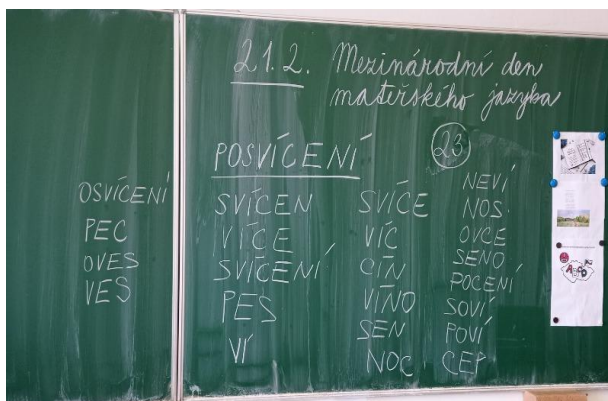 21.2. Mezinárodní den
mateřského jazyka
23
POSVÍCENÍ
OSVÍCENÍ
PEC
OVES
VES
SVÍCEN
VÍCE
SVÍCENÍ
PES
VÍ
SVÍCE
VÍC
CÍN
VÍNO
SEN
NOC
NEVÍ
NOS
OVCE
SENO
POCENÍ
SOVÍ
POVÍ
CEP